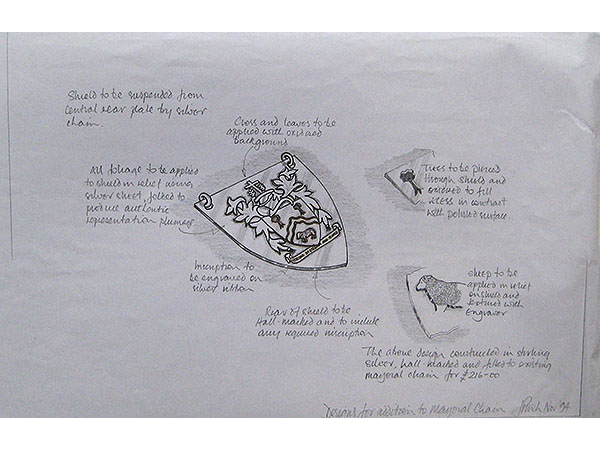 Shield to be suspended from
central rear plate by silver
chain.
Cross and leaves to be
applied with oxidised
background
All foliage to be applied
to shield in relief using
silver sheet, folded to
produce authentic
representation
Trees to be pierced
through shield and
oxidised to fill
recess in contrast
with polished surface
Inscription to
be engraved on
silver ribbon
Rear of shield to be
Hall-marked and to include
any required inscription
Sheep to be
applied in relief
on shield and
textured with
engraver
The above design constructed in sterling
silver, hall-marked and fitted to existing
mayoral chain for £216-00
Designs for addition to Mayoral Chain Nov '94